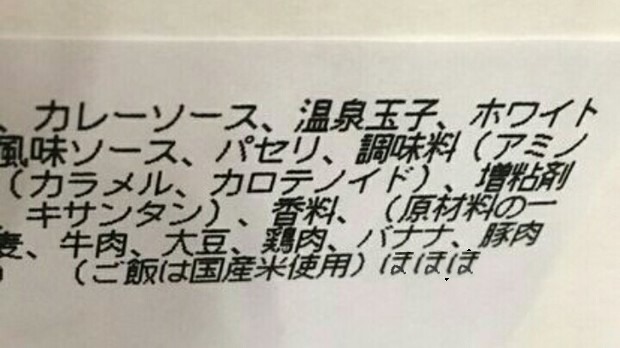 、カレーソース、温泉玉子、ホワイト
風味ソース、パセリ、調味料（アミノ
（カラメル、カロテノイド）、増粘剤
キサンタン）、香料、（原材料の一
麦、牛肉、大豆、鶏肉、バナナ、豚肉
）　（ご飯は国産米使用）ほほほ